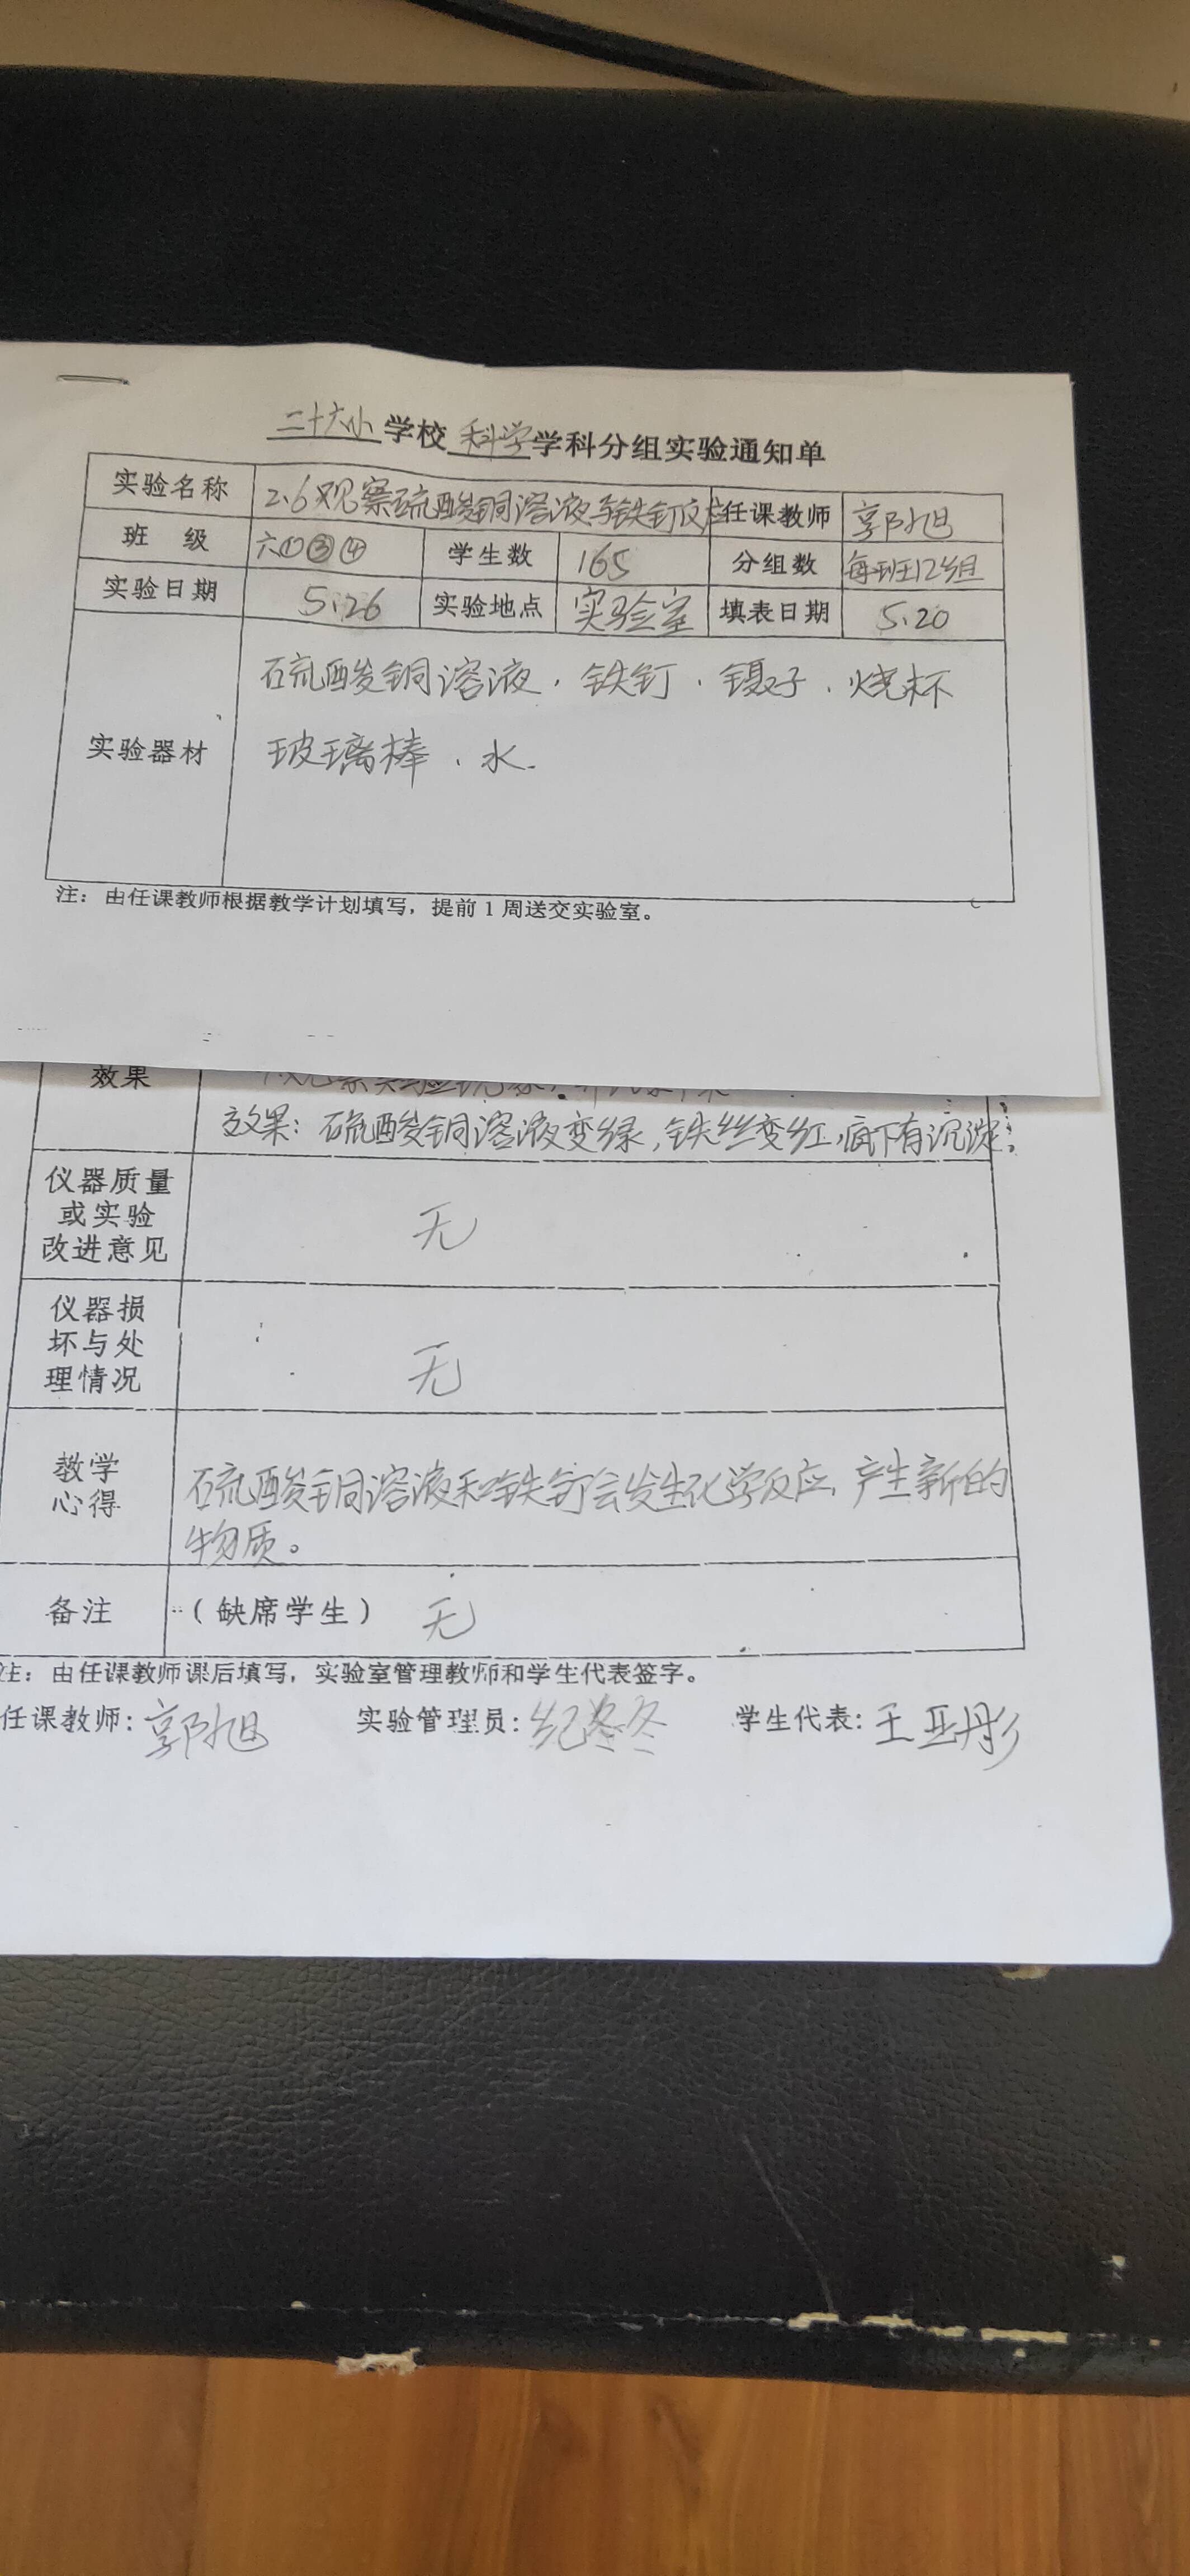 二十六小学校科学学科分组实验通知单
实验名称 2.6观察硫酸铜溶液与铁钉反应 任课教师 郭旭
班 级 六①③④ 学生数 165 分组数 每班12组
实验日期 5.26 实验地点 实验室 填表日期 5.20
实验器材 硫酸铜溶液、铁钉、镊子、烧杯
玻璃棒、水.
注：由任课教师根据教学计划填写，提前1周送交实验室。
效果
效果：硫酸铜溶液变绿，铁丝变红，底下有沉淀.
仪器质量
或实验
改进意见
无
仪器损
坏与处
理情况
无
教学
心得
硫酸铜溶液和铁钉会发生化学反应，产生新的
物质。
备注 （缺席学生） 无
注：由任课教师课后填写，实验室管理教师和学生代表签字。
任课教师：郭旭 实验管理员：纪冬冬 学生代表：王亚彤